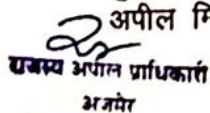 अपील मि
राजस्व अपील प्राधिकारी
अजमेर